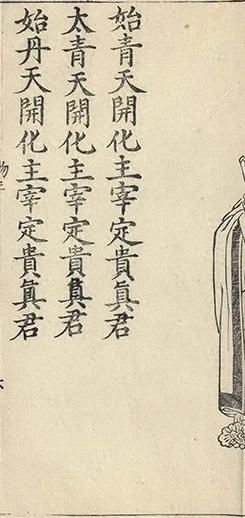 始青天開化主宰定貴眞君
太青天開化主宰定貴眞君
始丹天開化主宰定貴眞君